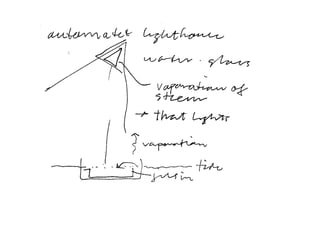 automated lighthouse
water · glass
vaporation of
steem
→ that lights
vaporation
tide